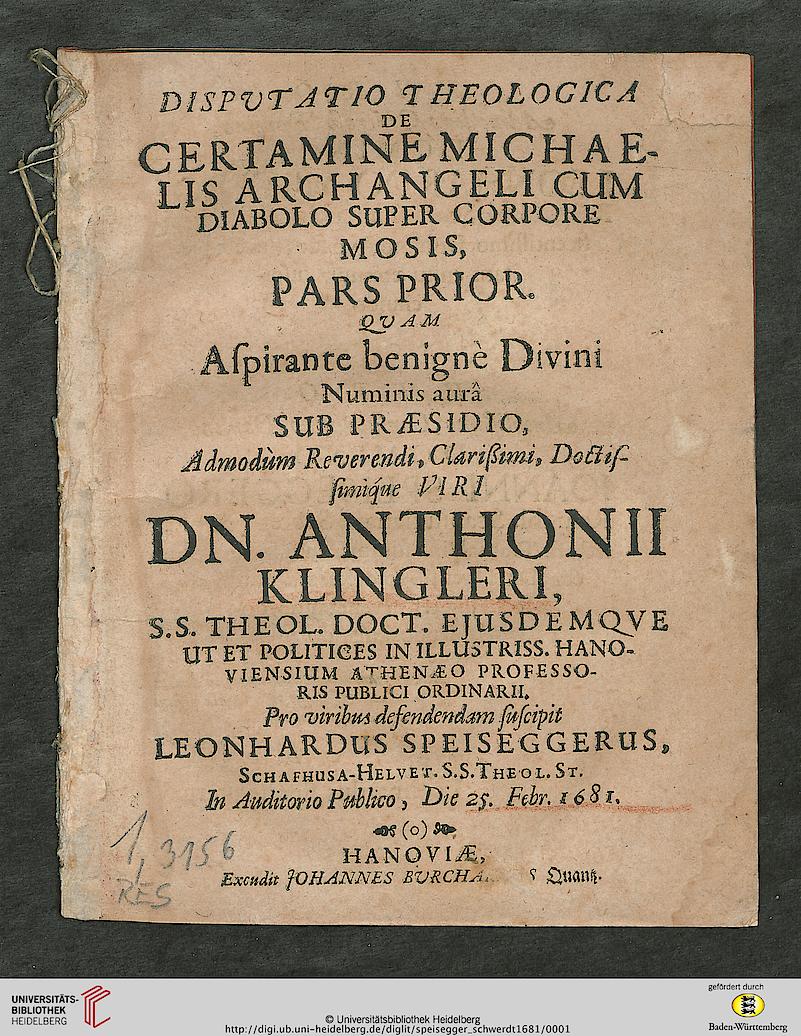 DISPVTATIO THEOLOGICA
DE
CERTAMINE MICHAE-
LIS ARCHANGELI CUM
DIABOLO SUPER CORPORE
MOSIS,
PARS PRIOR.
QVAM
Aſpirante benignè Divini
Numinis aurâ
SUB PRÆSIDIO,
Admodùm Reverendi, Clarißimi, Doctiſ-
ſimiq́ue VIRI
DN. ANTHONII
KLINGLERI,
S.S. THEOL. DOCT. EJUSDEMQVE
UT ET POLITICES IN ILLUSTRISS. HANO-
VIENSIUM ATHENÆO PROFESSO-
RIS PUBLICI ORDINARII.
Pro viribus defendendam ſuſcipit
LEONHARDUS SPEISEGGERUS,
SCHAFHUSA-HELVET. S.S. THEOL. ST.
In Auditorio Publico, Die 25. Febr. 1681.
(o)
HANOVIÆ,
Excudit JOHANNES BURCHA Quantz.
1, 3156
RES
UNIVERSITÄTS-
BIBLIOTHEK
HEIDELBERG
© Universitätsbibliothek Heidelberg
http://digi.ub.uni-heidelberg.de/diglit/speisegger_schwerdt1681/0001
gefördert durch
Baden-Württemberg